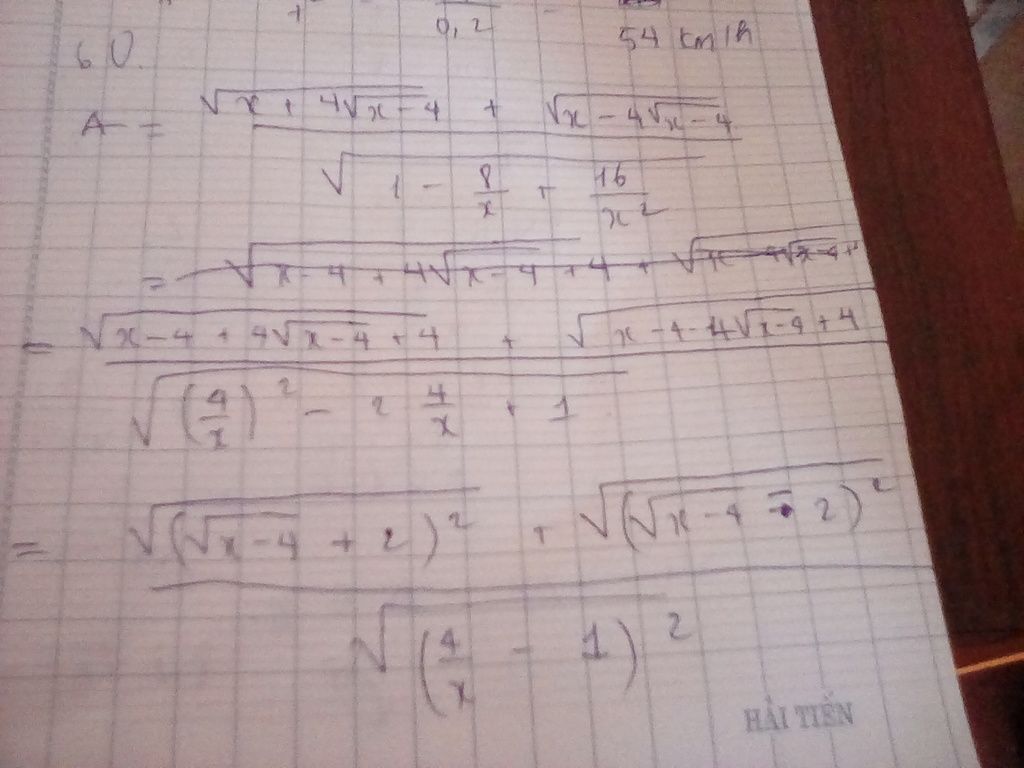 0,2 54 km/h
60.
A = \frac{\sqrt{x + 4\sqrt{x-4}} + \sqrt{x - 4\sqrt{x-4}}}{\sqrt{1 - \frac{8}{x} + \frac{16}{x^2}}}
= \frac{\sqrt{x-4 + 4\sqrt{x-4} + 4} + \sqrt{x-4-4\sqrt{x-4}+4}}{\sqrt{(\frac{4}{x})^2 - 2 \frac{4}{x} + 1}}
= \frac{\sqrt{(\sqrt{x-4} + 2)^2} + \sqrt{(\sqrt{x-4} - 2)^2}}{\sqrt{(\frac{4}{x} - 1)^2}}
HẢI TIẾN